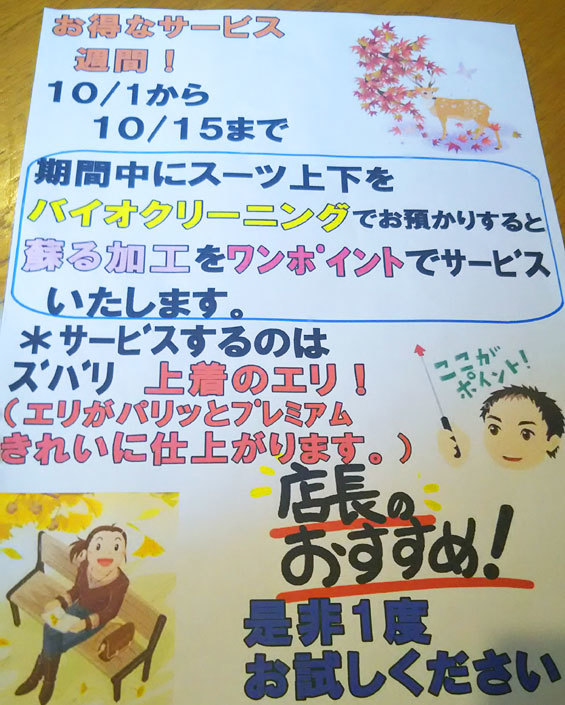 お得なサービス
週間！
10/1から
10/15まで
期間中にスーツ上下を
バイオクリーニングでお預かりすると
蘇る加工をワンポイントでサービス
いたします。
＊サービスするのは
ズバリ 上着のエリ！
（エリがパリッとプレミアム
きれいに仕上がります。）
ここが
ポイント！
店長の
おすすめ！
是非1度
お試しください